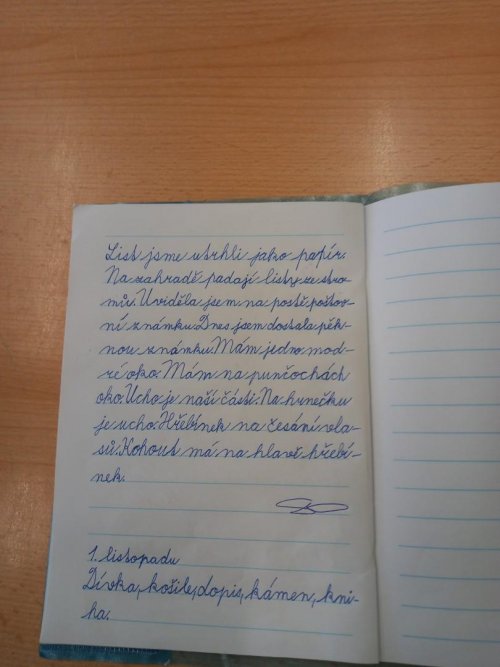 List jsme utrhli jako papír.
Na zahradě padají listy ze stro-
mů. Uviděla jsem na poště poštov-
ní známku. Dnes jsem dostala pěk-
nou známku. Mám jedno mod-
ré oko. Mám na punčochách
oko. Ucho je naší částí. Na hrnečku
je ucho. Hřebínek na česání vla-
sů. Kohout má na hlavě hřebí-
nek.
1. listopadu
Dívka, košile, dopis, kámen, kni-
ha.